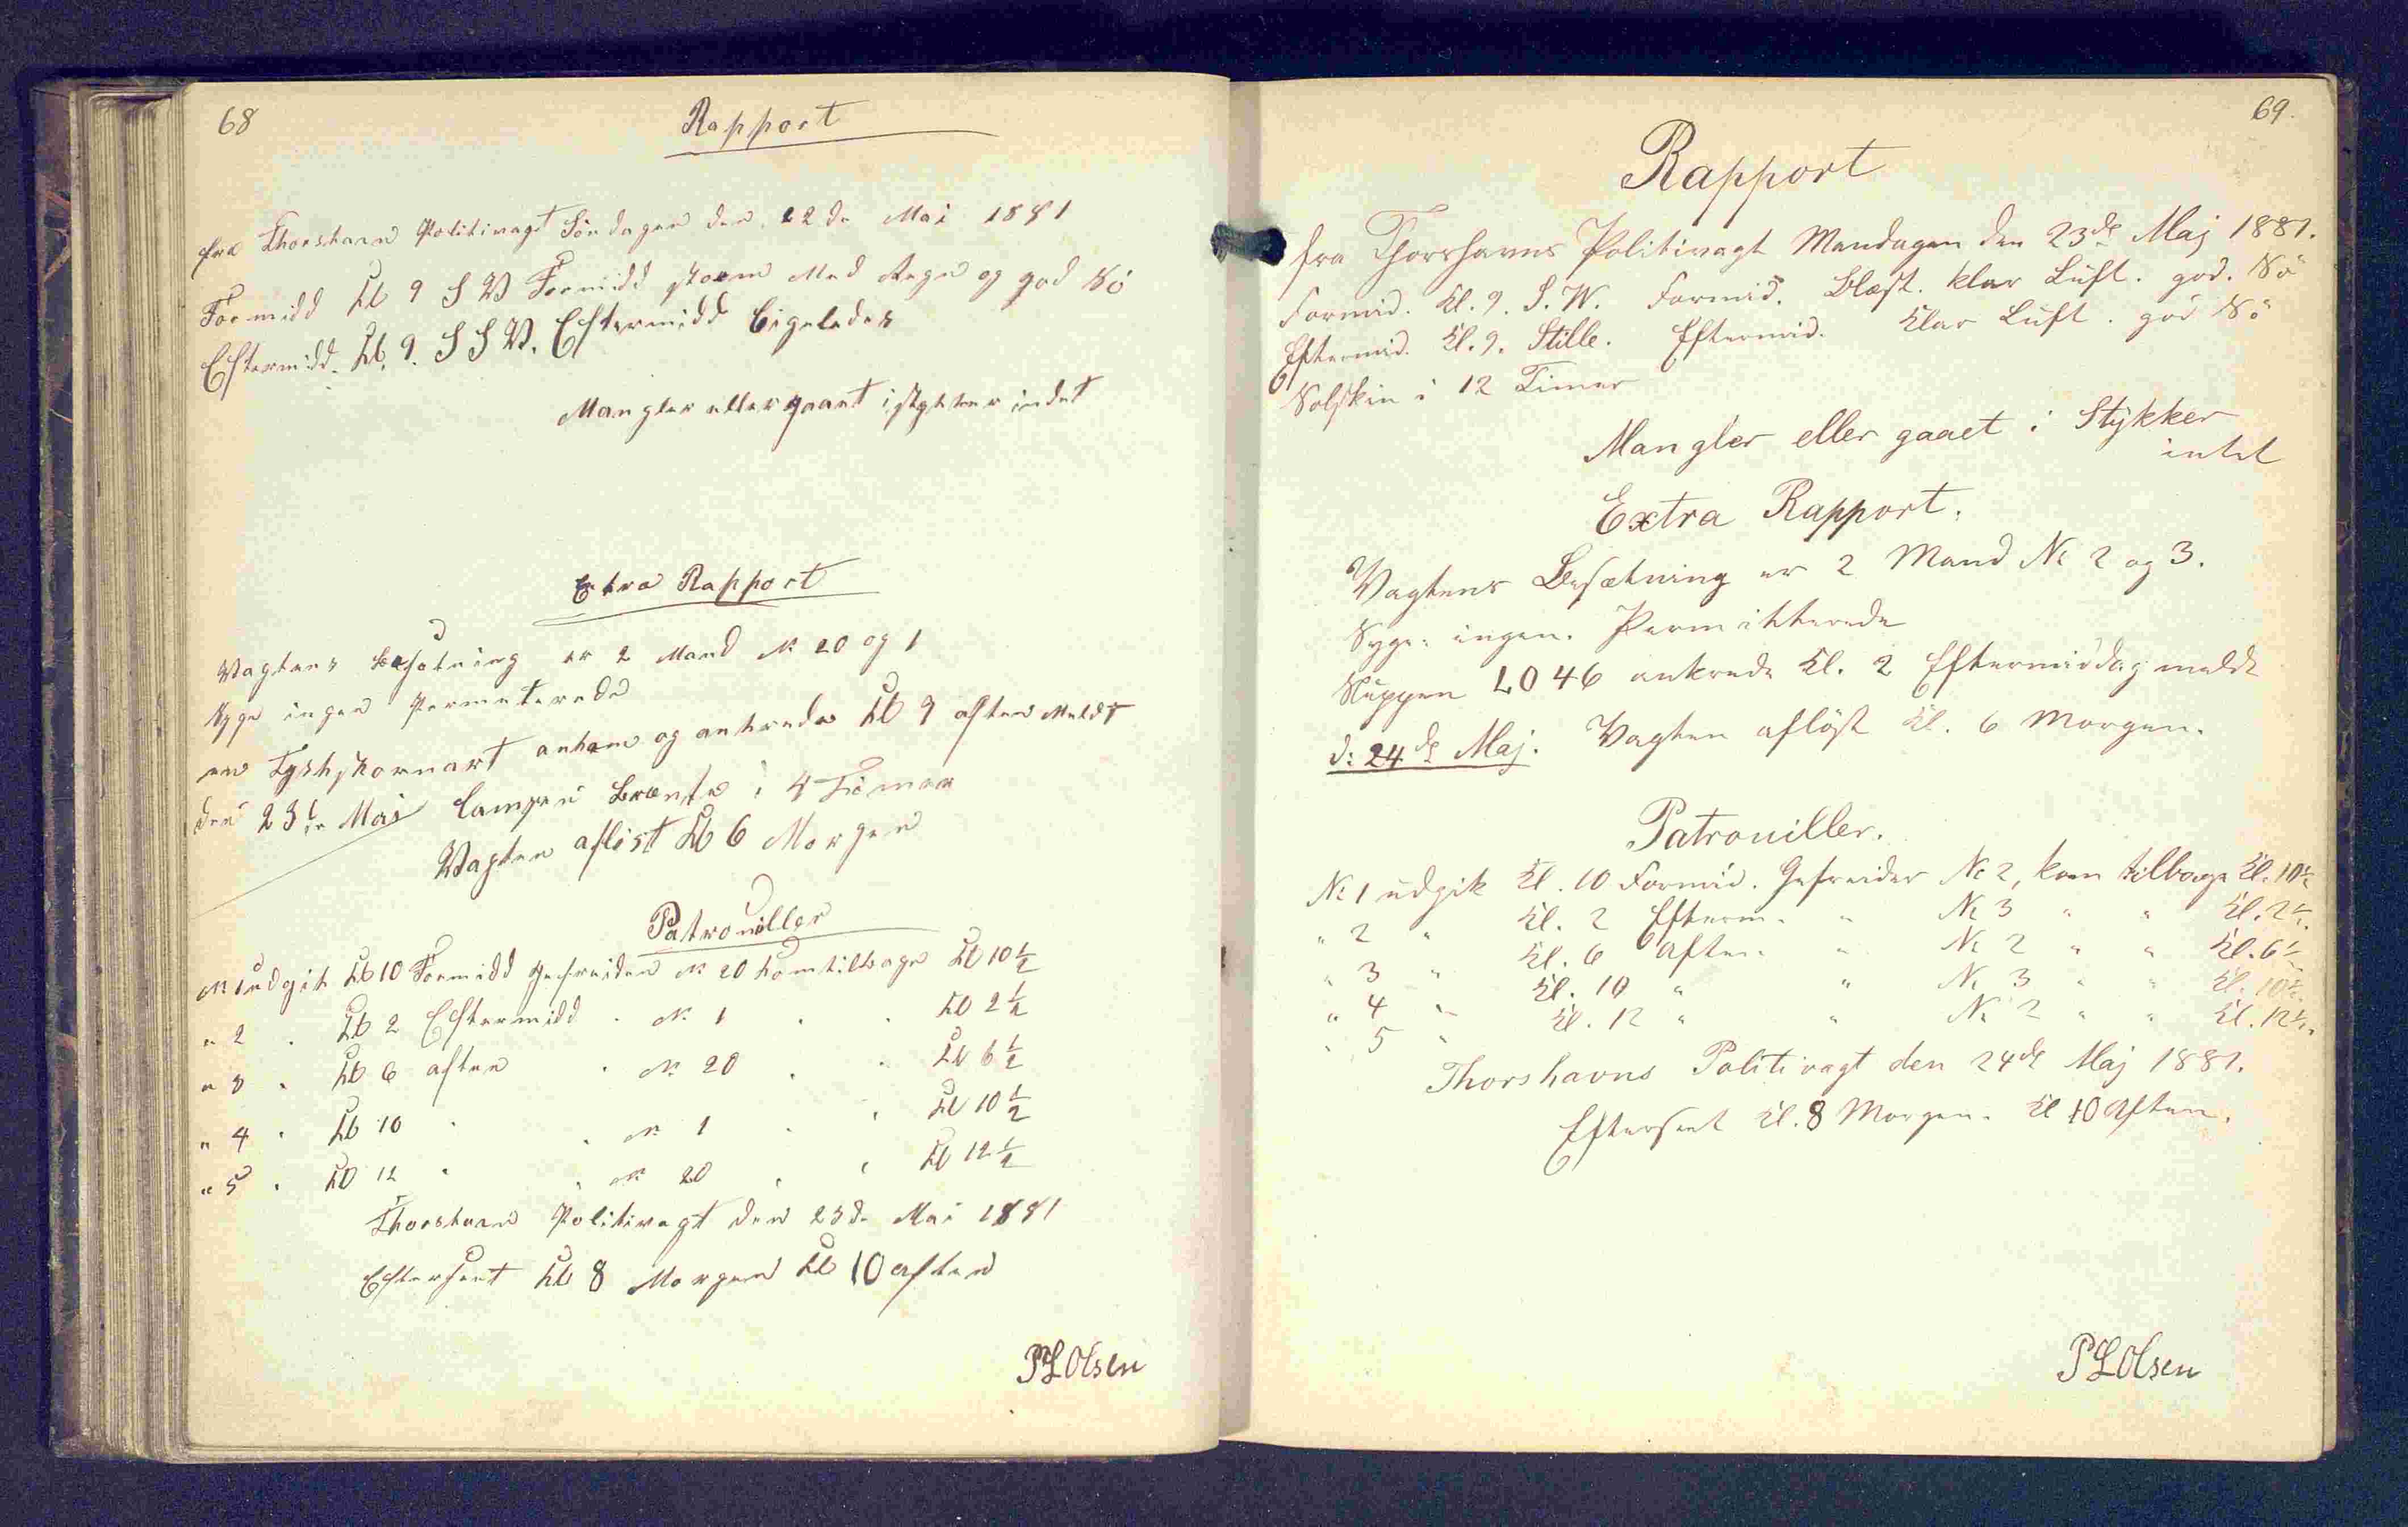 68
Rapport
fra Thorshavn Politivagt Söndagen den 22de Mai 1881
Formidd Kl 9 S V Formidd storm Med Regn og god Sö
Eftermidd. Kl. 9. S S V. Eftermidd ligeledes
Mangler eller gaaet istykker indet
Extra Rapport
Vagtens Besætning er 2 Mand No 20 og 1
Syge ingen Permeterede
en Tyskskonnart ankom og ankrede Kl 9 aften Meldt
den 23de Mai Lampen Brænte i 4 Timer
Vagten aflöst Kl 6 Morgen
Patrouiller
No 1 udgik Kl 10 Formidd Gefreiden No 20 kom tilbage Kl 10½
" 2 " Kl 2 Eftermidd " No 1 " " Kl 2½
" 3 " Kl 6 aften " No 20 " " Kl 6½
" 4 " Kl 10 " " No 1 " " Kl 10½
" 5 " Kl 12 " " No 20 " " Kl 12½
Thorshavn Politivagt den 23de Mai 1881
Efterseet Kl 8 Morgen Kl 10 aften
PLOlsen
69.
Rapport
fra Thorshavns Politivagt Mandagen den 23de Maj 1881.
Formid. Kl. 9. S.W. Formid. Blæst. klar Luft. god. Sö
Eftermid. Kl. 9. Stille. Eftermid. Klar Luft. god Sö
Solskin i 12 Timer
Mangler eller gaaet i Stykker
intet
Extra Rapport.
Vagtens Besætning er 2 Mand No 2 og 3.
Syge: ingen. Permitterede
Sluppen LO 46 ankrede Kl. 2 Eftermiddag meldt
d: 24de Maj. Vagten aflöst Kl. 6 Morgen.
Patrouiller.
No 1 udgik Kl. 10 Formid. Gefreider No 2, kom tilbage Kl. 10½
" 2 " Kl. 2 Efterm. " No 3 " " Kl. 2½
" 3 " Kl. 6 Aften. " No 2 " " Kl. 6½
" 4 " Kl. 10 " " No 3 " " Kl. 10½
" 5 " Kl. 12 " " No 2 " " Kl. 12½
Thorshavns Politivagt den 24de Maj 1881.
Efterseet Kl. 8 Morgen. Kl 10 Aften.
PLOlsen